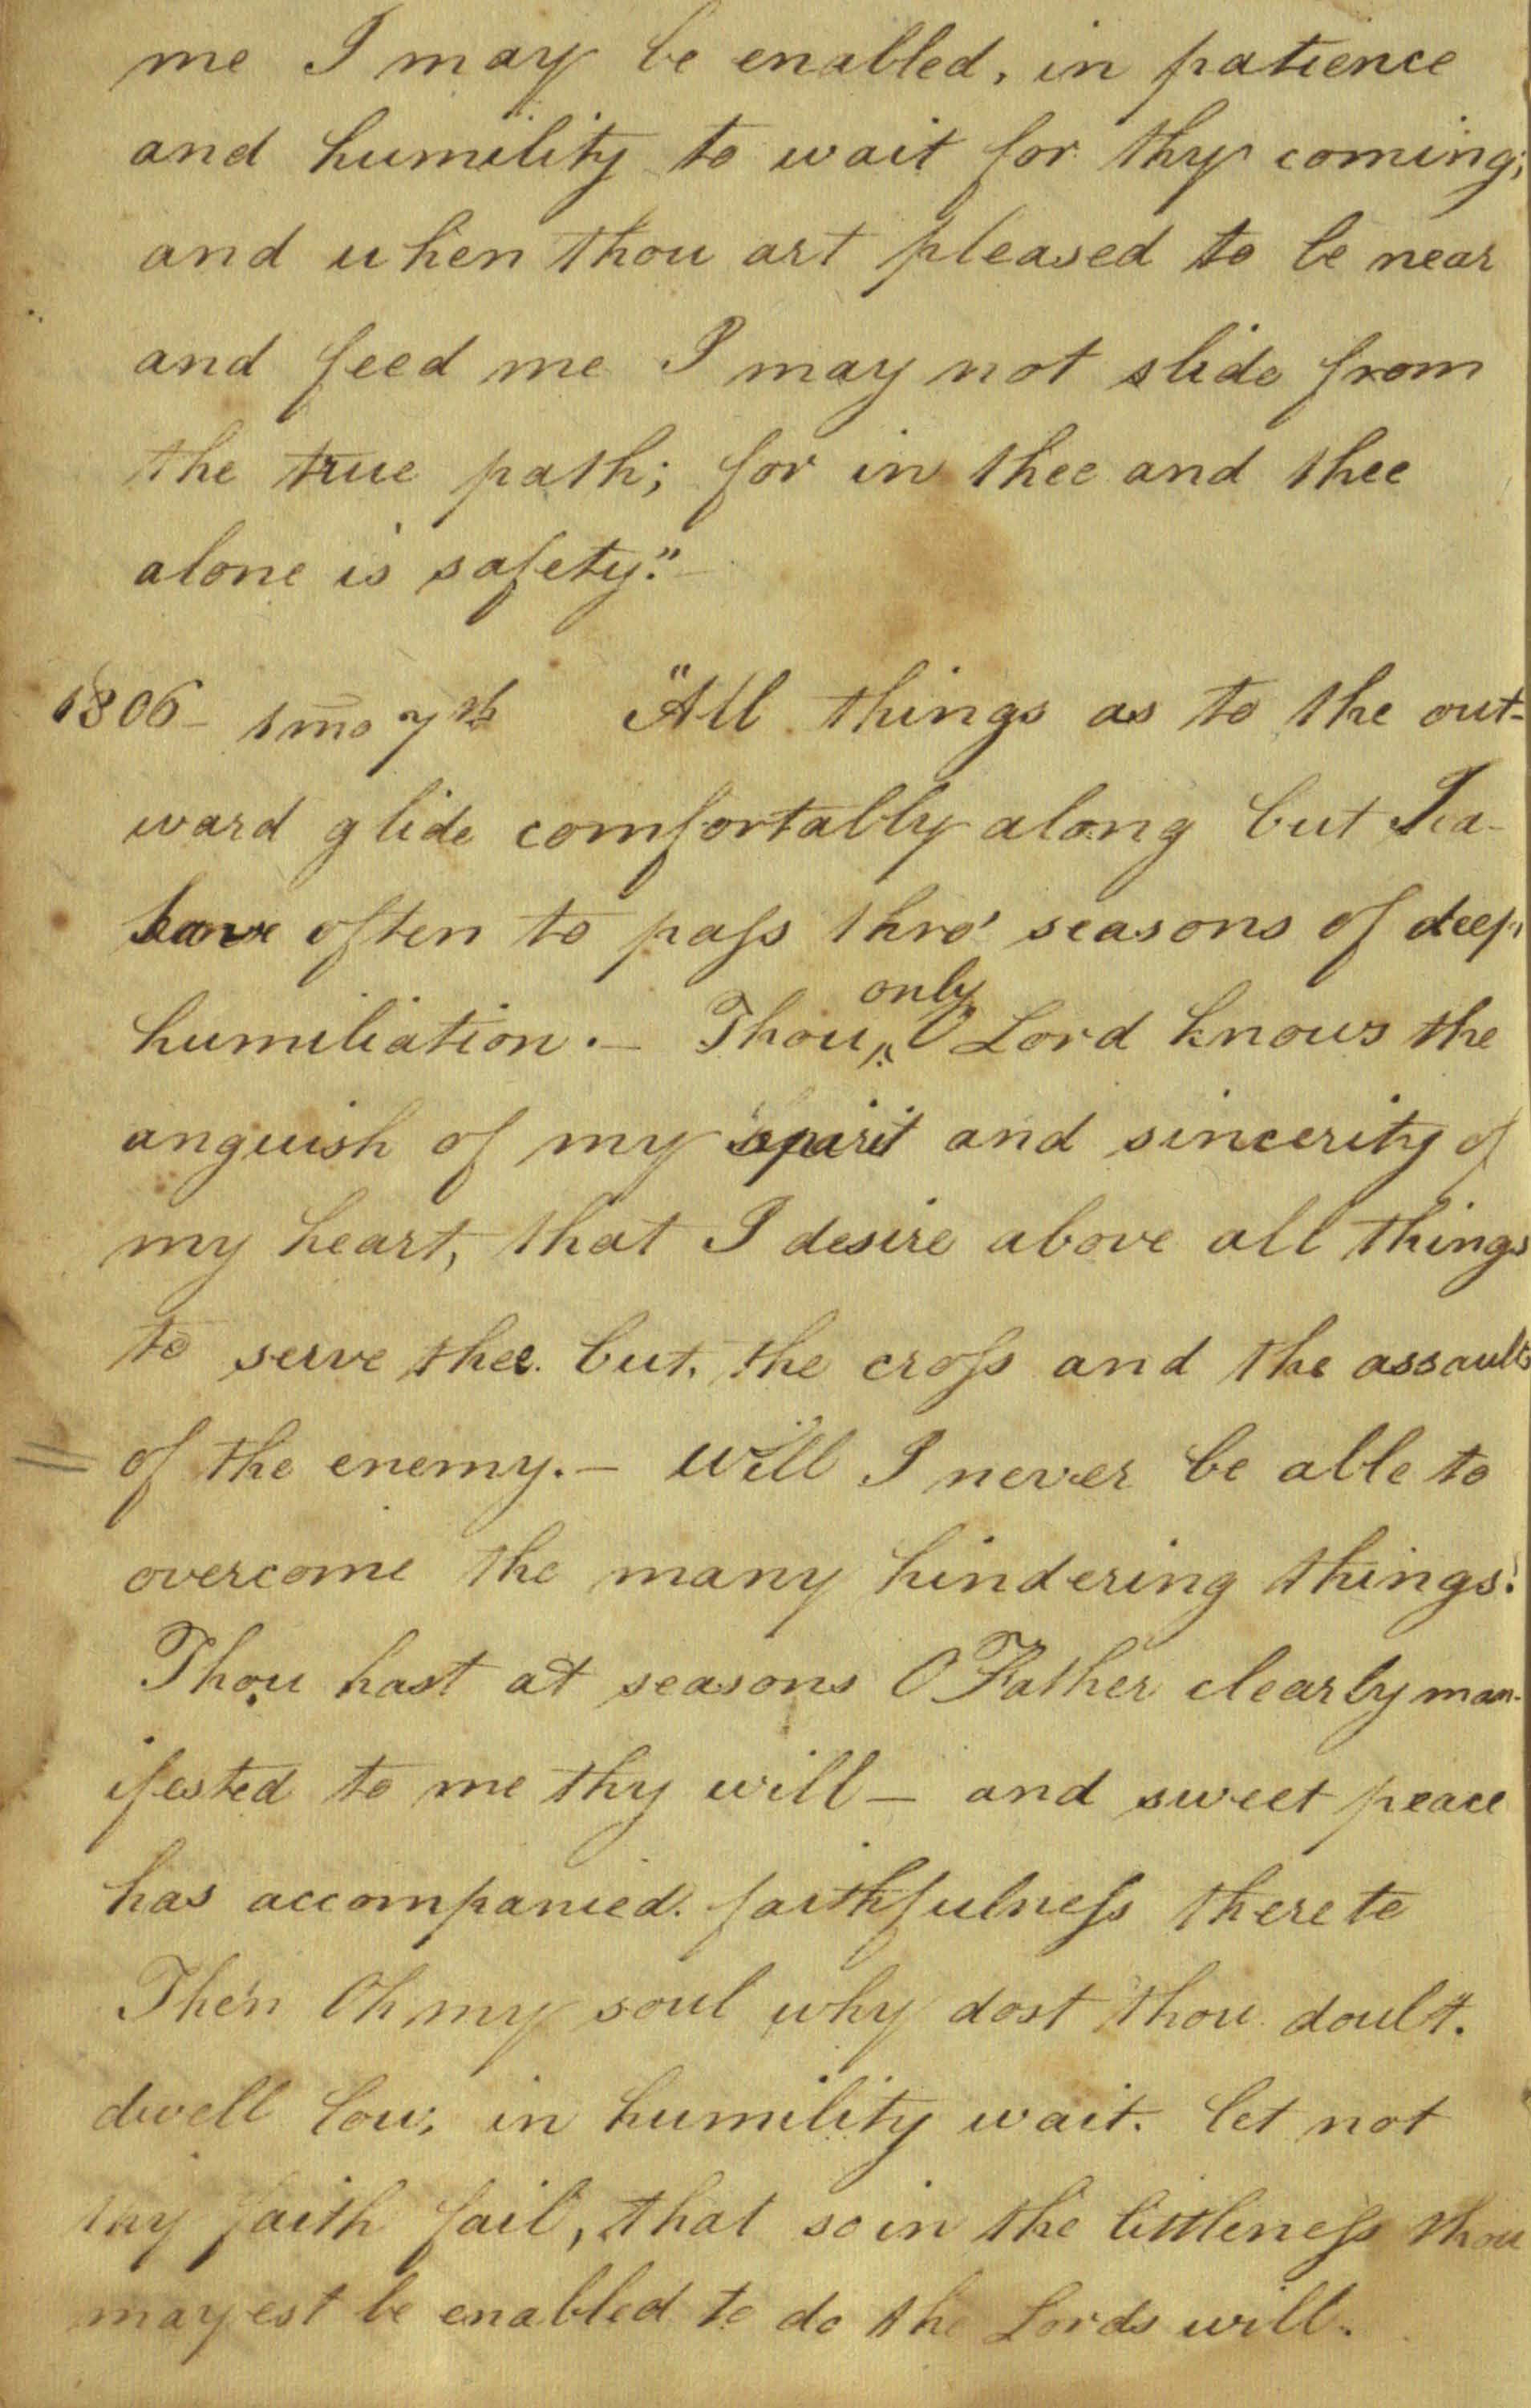 me I may be enabled, in patience
and humility to wait for thy coming;
and when thou art pleased to be near
and feed me I may not slide from
the true path; for in thee and thee
alone is safety."
1806 - 1mo 7th "All things as to the out-
ward glide comfortably along but I
have often to pass thro' seasons of deep
humiliation. - Thou, only O Lord knows the
anguish of my spirit and sincerity of
my heart, that I desire above all things
to serve thee. but, the cross and the assaults
of the enemy. - will I never be able to
overcome the many hindering things.
Thou hast at seasons O Father clearly man-
ifested to me thy will - and sweet peace
has accompanied faithfulness thereto
Then Oh my soul why dost thou doubt.
dwell low; in humility wait. let not
thy faith fail, that so in the littleness thou
mayest be enabled to do the Lords will.